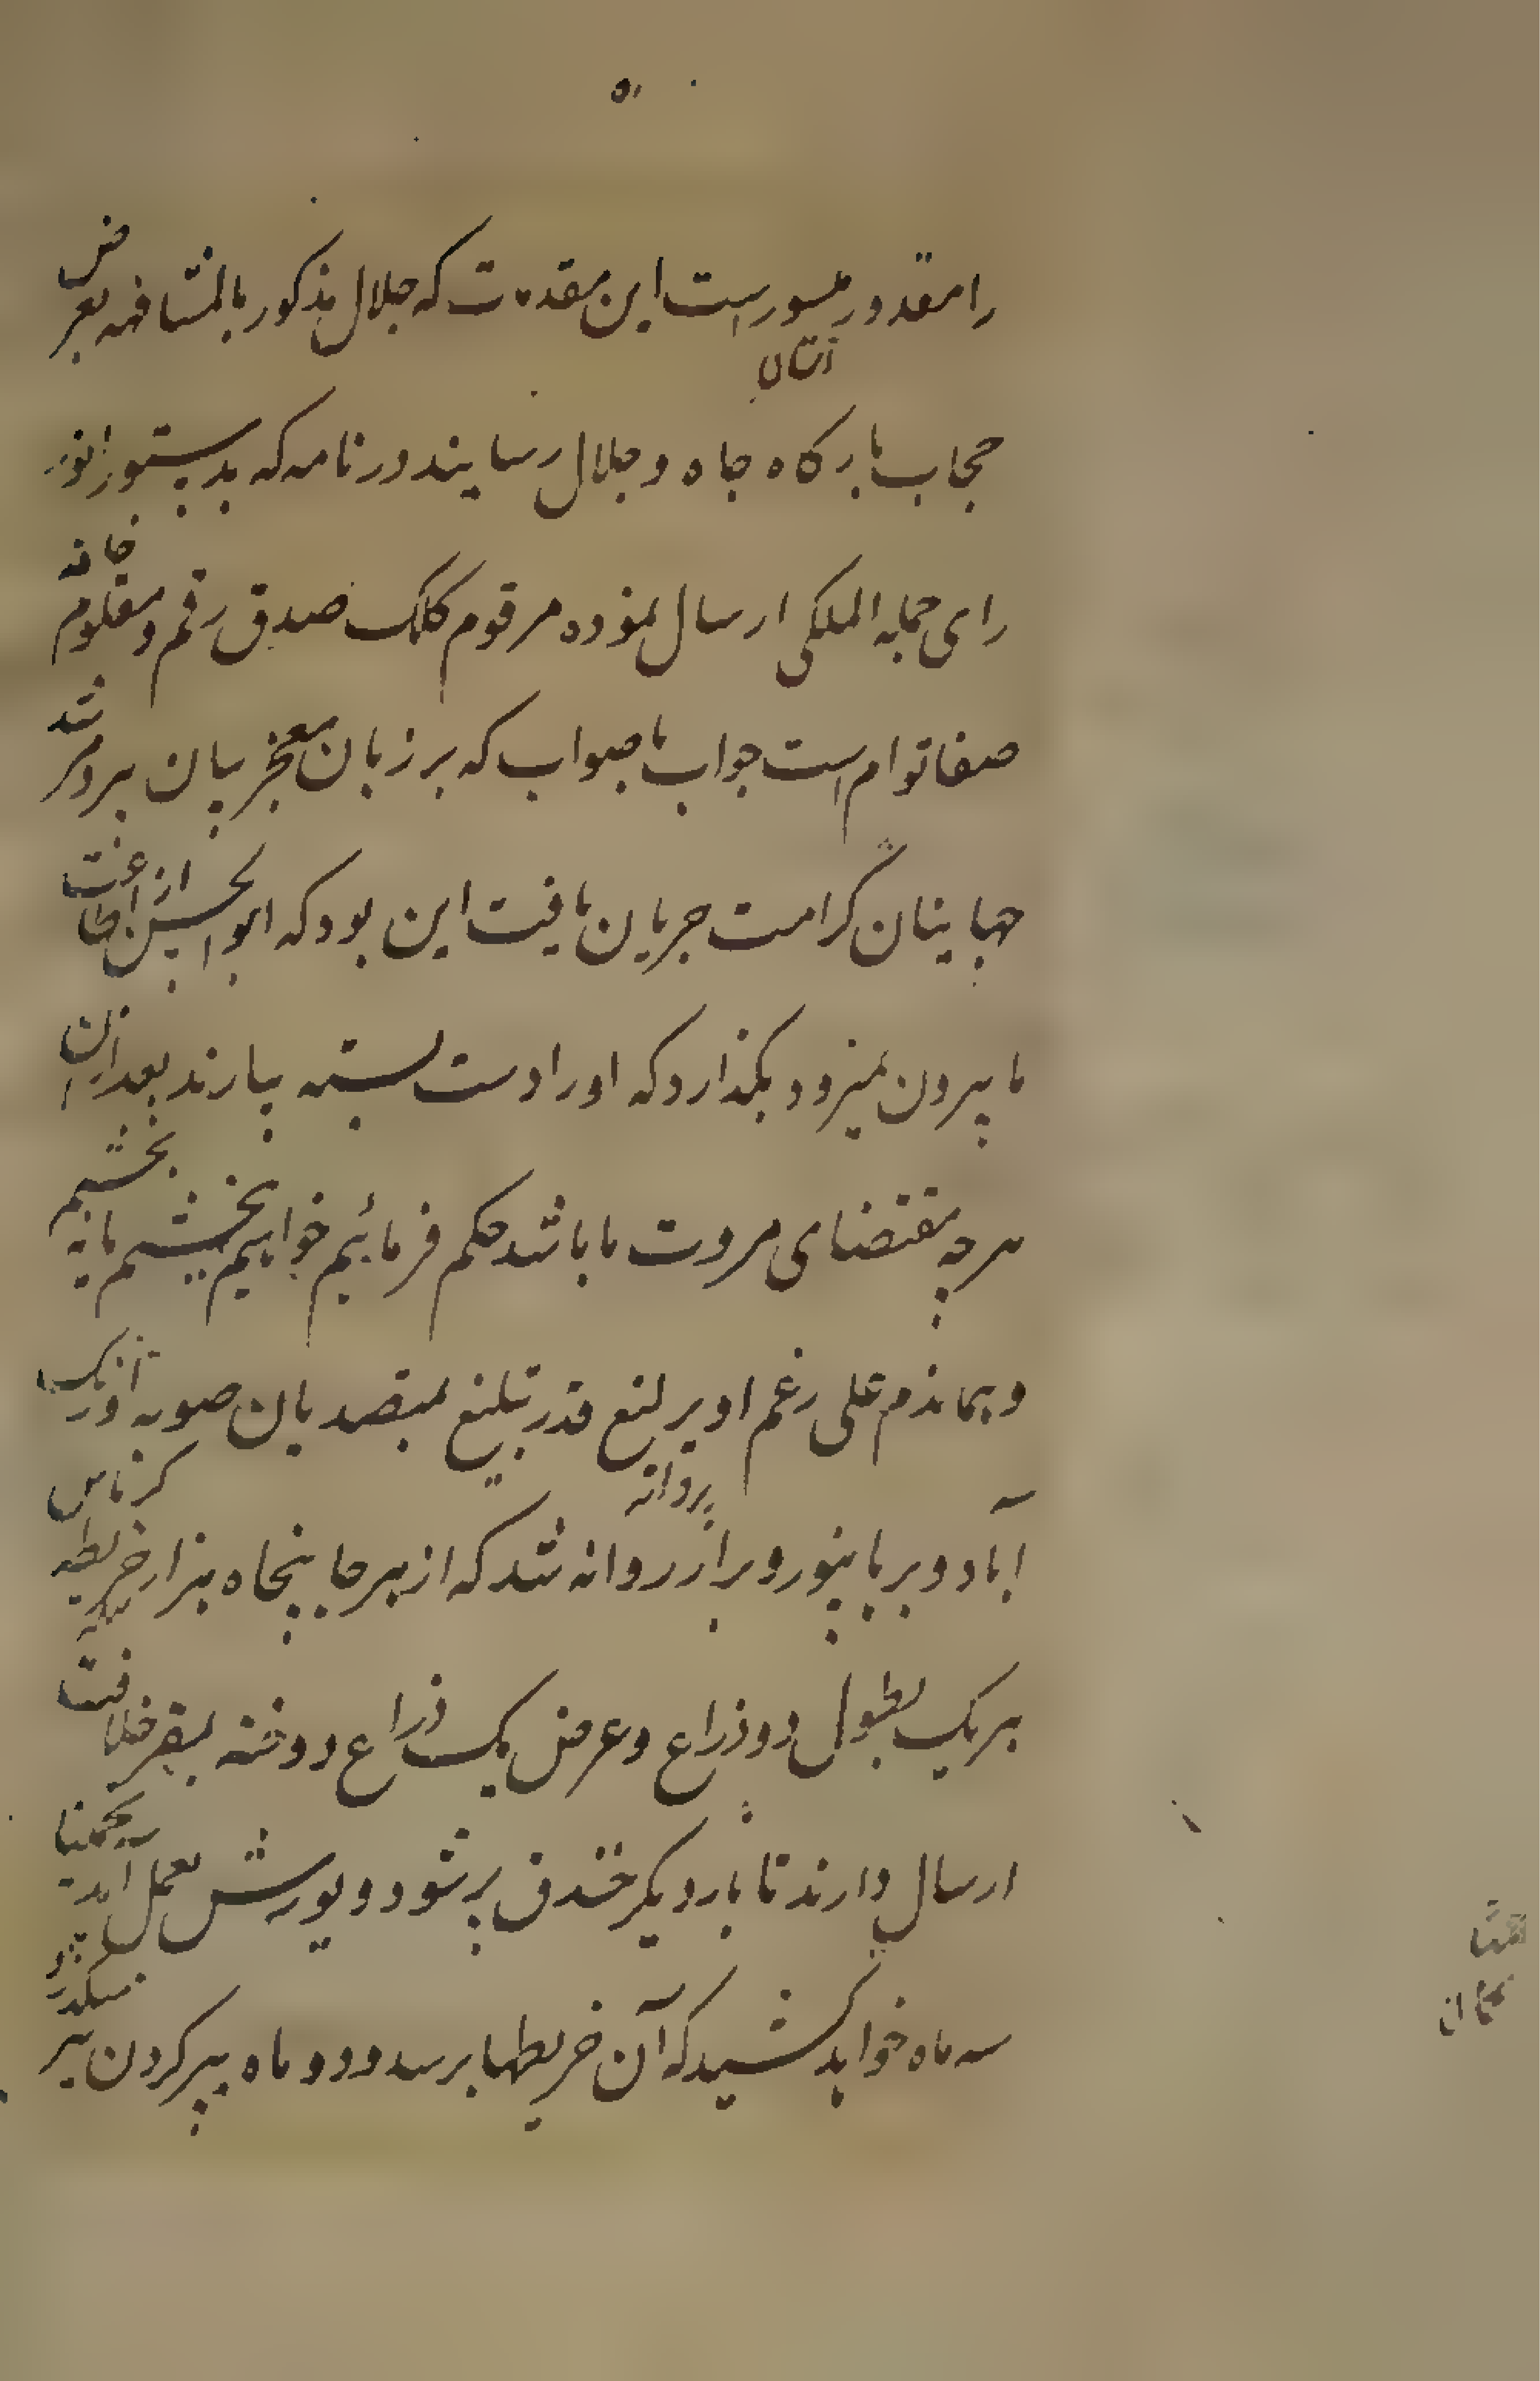 را مقدور میسور است این مقدمات که جلال مذکور بالمشافهه بعرض
حجاب بارکاه جاه و جلال رسایند در نامه که بدستور انور
رای جملة الملکی ارسال نموده مرقوم کلک صدق رقم و مقلوم خامه
صفا توام است جواب با صواب که بر زبان معجز بیان سرور مرشد
جهابنان کرامت جریان یافت این بود که ابوالحسن از اطاعت
ما بیرون نمیرود بکذارد که او را دست بسته بیارند بعد ازان
هرچه مقتضای مروت ما باشد حکم فرمائیم خواهیم بخشیم
و بماندم علی رغم او یرلیغ قدر تبلیغ بمتصدیان صوبه اورنک
آباد و برهانپور و برار روانه شد که از هر جا پنجاه هزار خریطه کرباس
هریک بطول دو ذراع و عرض یک ذراع دوخته بمقر خلافت
ارسال دارند تا بار دیکر خندق پر شود و یورش بعمل آید تخمینا
سه ماه خواهد کشید که آن خریطها برسد و دو ماه پر کردن نیز میکذرد